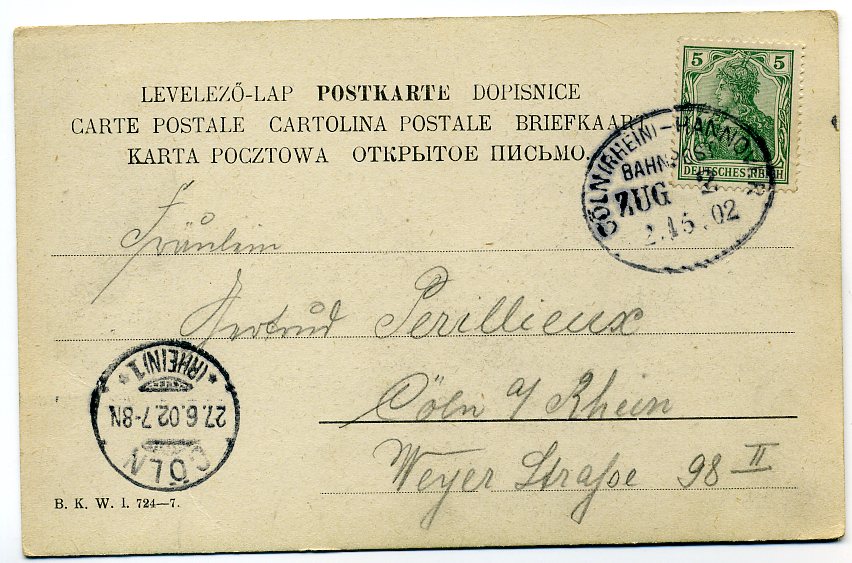 LEVELEZŐ-LAP POSTKARTE DOPISNICE
CARTE POSTALE CARTOLINA POSTALE BRIEFKAART
KARTA POCZTOWA ОТКРЫТОЕ ПИСЬМО.
5 5
DEUTSCHES REICH
CÖLN (RHEIN) - HANNOVER
BAHNPOST
ZUG 2
02
Fräulein
Gertrud Perillieux
Cöln a/ Rhein
Weyer Straße 98 II
CÖLN
27.6.02.7-8N
* (RHEIN) 1 *
B. K. W. I. 724—7.